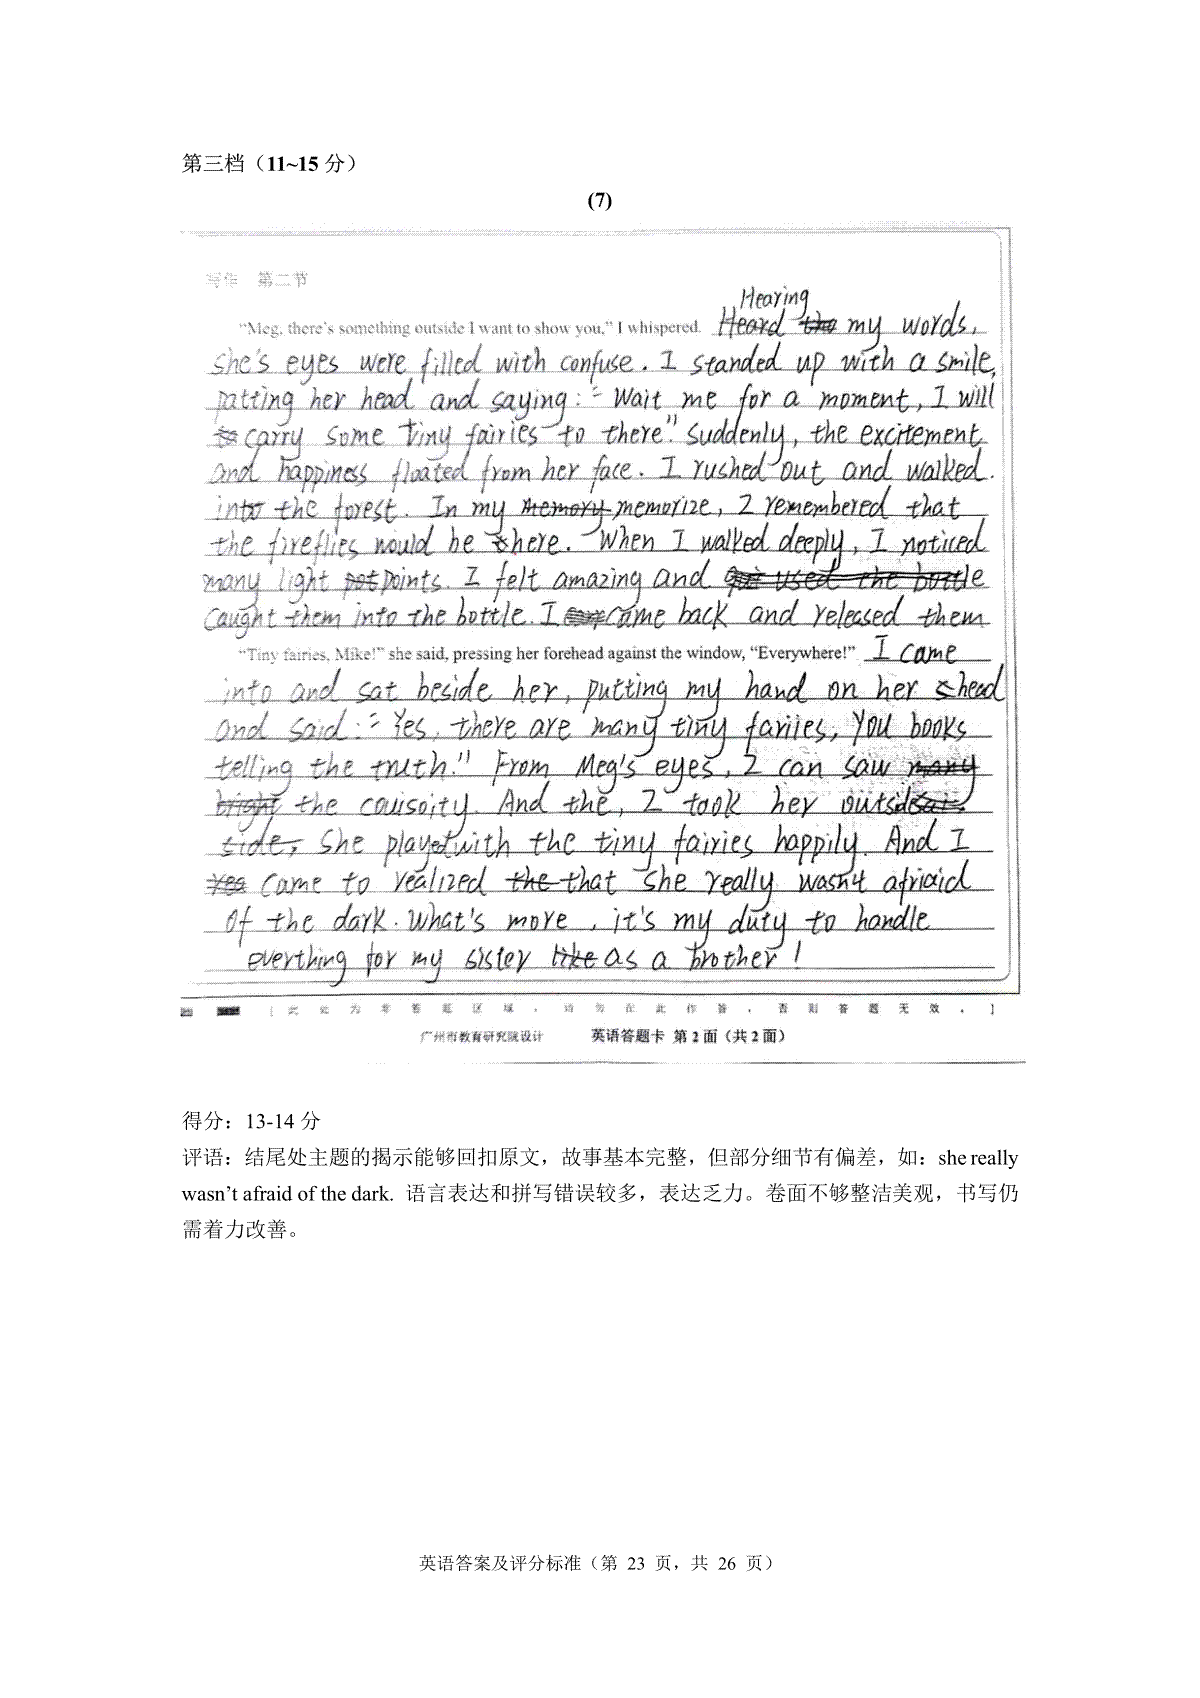 第三档（11~15 分）
(7)
写作 第二节
Hearing
"Meg, there's something outside I want to show you," I whispered. Heard the my words,
she's eyes were filled with confuse. I standed up with a smile,
patting her head and saying: "Wait me for a moment, I will
to carry some Tiny fairies to there." Suddenly, the excitement
and happiness floated from her face. I rushed out and walked.
into the forest. In my memory memorize, I remembered that
the fireflies would be there. When I walked deeply, I noticed
many light pot points. I felt amazing and used the bottle
caught them into the bottle. I came back and released them
"Tiny fairies, Mike!" she said, pressing her forehead against the window, "Everywhere!" I came
into and sat beside her, putting my hand on her head
and said: "Yes, there are many tiny fariies, you books
telling the truth." From Meg's eyes, I can saw many
bright the couisoity. And the, I took her outside
side, She played with the tiny fairies happily. And I
came to realized the that she really wasn't afriaid
of the dark. What's more, it's my duty to handle
everthing for my sister like as a brother!
[ 此 处 为 非 答 题 区 域 ， 请 勿 在 此 作 答 ， 否 则 答 题 无 效 。 ]
广州市教育研究院设计 英语答题卡 第 2 面（共 2 面）
得分：13-14 分
评语：结尾处主题的揭示能够回扣原文，故事基本完整，但部分细节有偏差，如：she really
wasn't afraid of the dark. 语言表达和拼写错误较多，表达乏力。卷面不够整洁美观，书写仍
需着力改善。
英语答案及评分标准（第 23 页，共 26 页）